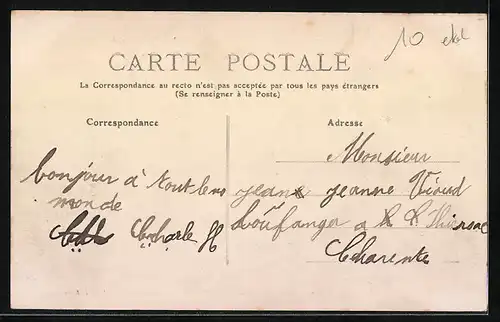 10
CARTE POSTALE
La Correspondance au recto n'est pas acceptée par tous les pays étrangers
(Se renseigner à la Poste)
Correspondance
Adresse
bonjour à tout lens
monde
Charle H
Monsieur
jean jeanne Vioud
Charente